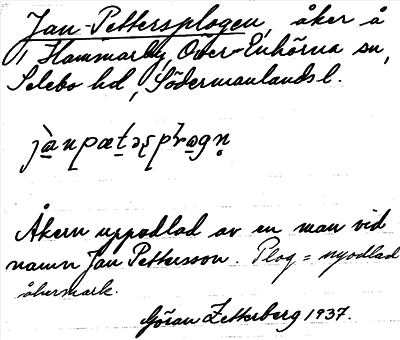 Jan-Pettersplogen, åker å
Hammarby, Över-Enhörna sn,
Selebo hd, Södermanlands l.
Åkern uppodlad av en man vid
namn Jan Pettersson. Plog = nyodlad
åkermark.
Göran Zetterberg 1937.